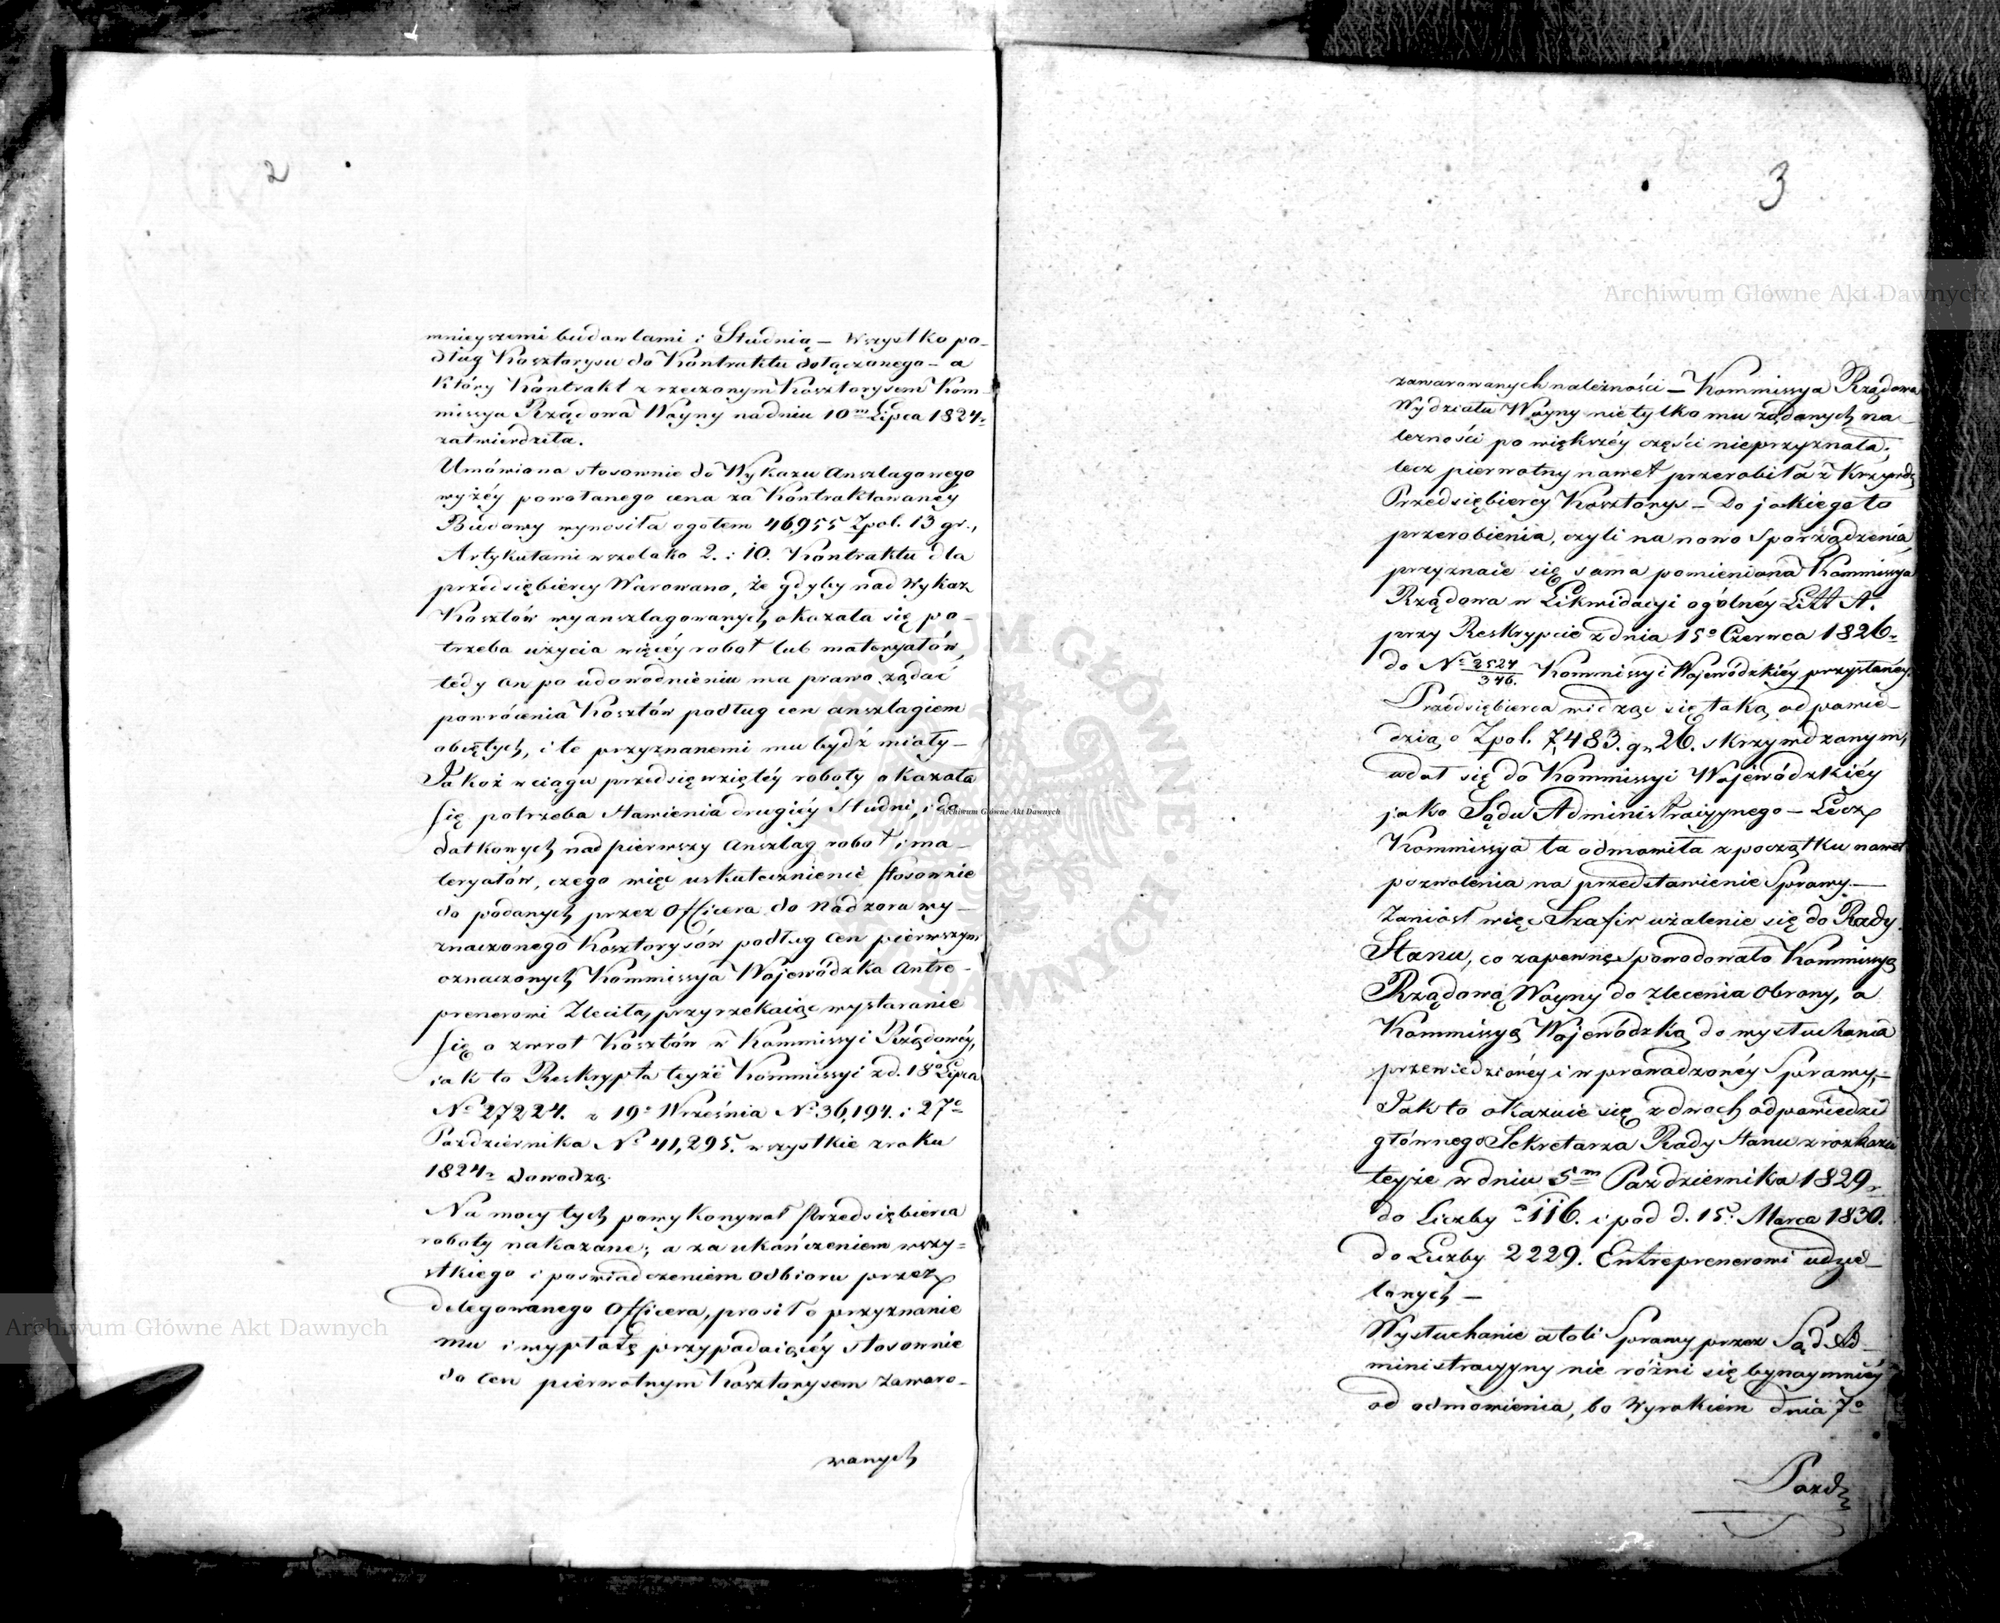 2
mnieyszemi budowlami i Studnią – Wszystko po-
dług Kosztorysu do Kontraktu dołączonego – a
Który Kontrakt z rzeczonym Kosztorysem Kom-
missya Rządowa Woyny na dniu 10m Lipca 1824r
zatwierdziła.
Umówiona stosownie do Wykazu Anszlagowego
wyżéy powołanego cena za Kontraktowanéy
Budowy wynosiła ogółem 46,955 Zpol. 13 gr.,
Artykułami wszelako 2. i 10. Kontraktu dla
przedsiębiercy Warowano, że gdyby nad Wykaz
Kosztów wyanszlagowanych okazała się po-
trzeba użycia więcéy robot lub materyałów,
tedy on po udowodnieniu ma prawo żądać
powrócenia Kosztów podług cen anszlagiem
obiętych, i te przyznanemi mu bydź miały –
Jakoż w ciągu przedsięwziętéy roboty okazała
się potrzeba stawienia drugiéy Studni, i do-
datkowych nad pierwszy Anszlag robot i ma-
teryałów, czego więc uskutecznienie stosownie
do podanych przez Officera do Nadzoru wy-
znaczonego Kosztorysów podług Cen pierwszym
oznaczonych Kommissya Wojewódzka Antre-
prenerowi Zleciła, przyrzekaiąc wystaranie
się o zwrot Kosztów w Kommissyi Rządowéy,
iak to Reskrypta teyże Kommissyi z d. 18o Lipca
No 27224. z 19o Września No 36,194. i 27o
Października No 41,295. wszystkie z roku
1824r dowodzą.
Na mocy tych powykonywał Przedsiębierca
roboty nakazane; a za ukończeniem wszy-
stkiego i poswiadczeniem Odbioru przez
delegowanego Officera, prosił o przyznanie
mu i wypłatę przypadaiącéy stosownie
do Cen pierwotnym Kosztorysem Zawaro-
wanych
3
zawarowanych należności – Kommissya Rządowa
Wydziału Woyny nietylko mu żądanych na-
leżności po większéy części nieprzyznała;
lecz pierwotny nawet przerobiła z Krzywdą
Przedsiębiercy Kosztorys – Do jakiego to
przerobienia, czyli na nowo Sporządzenia,
przyznaie się sama pomieniona Kommissya
Rządowa w Likwidacyi ogólnéy Litt A.
przy Reskrypcie z dnia 15o Czerwca 1826r
do No 2524/346. Kommissyi Wojewódzkiéy przysłanéy.
Przedsiębierca widząc się taką odpowie-
dzią o Zpol. 7,483. gr 26. skrzywdzonym,
udał się do Kommissyi Wojewódzkiéy
jako Sądu Administracyjnego – Lecz
Kommissya ta odmówiła z początku nawet
pozwolenia na przedstawienie Sprawy. –
Zaniósł więc Szafir użalenie się do Rady
Stanu, co zapewne spowodowało Kommissyą
Rządową Woyny do zlecenia Obrony, a
Kommissyą Wojewódzką do wysłuchania
przewiedzionéy i wprowadzonéy Sprawy, –
Jak to okazuie się z dwóch odpowiedzi
głównego Sekretarza Rady Stanu z rozkazu
teyże w dniu 5m Października 1829r
do Liczby 116. i pod d. 15o Marca 1830.
do Liczby 2229. Entreprenerowi udzie-
lonych –
Wysłuchanie atoli Sprawy przez Sąd Ad-
ministracyyny nie różni się bynaymniéy
od odmówienia, bo Wyrokiem dnia 7o
Paźdz
Archiwum Główne Akt Dawnych
Archiwum Główne Akt Dawnych
Archiwum Główne Akt Dawnych